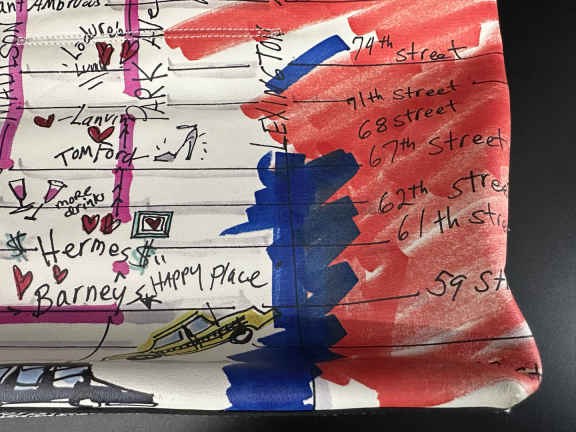 Ambrus
PARK AVE
LEXINGTON
74th street
71th street
68 street
Lanvin
TOM FORD
67th street
62th stree
more
drinks
61th stre
$ Hermes $
"HAPPY Place
Barneys
59 St